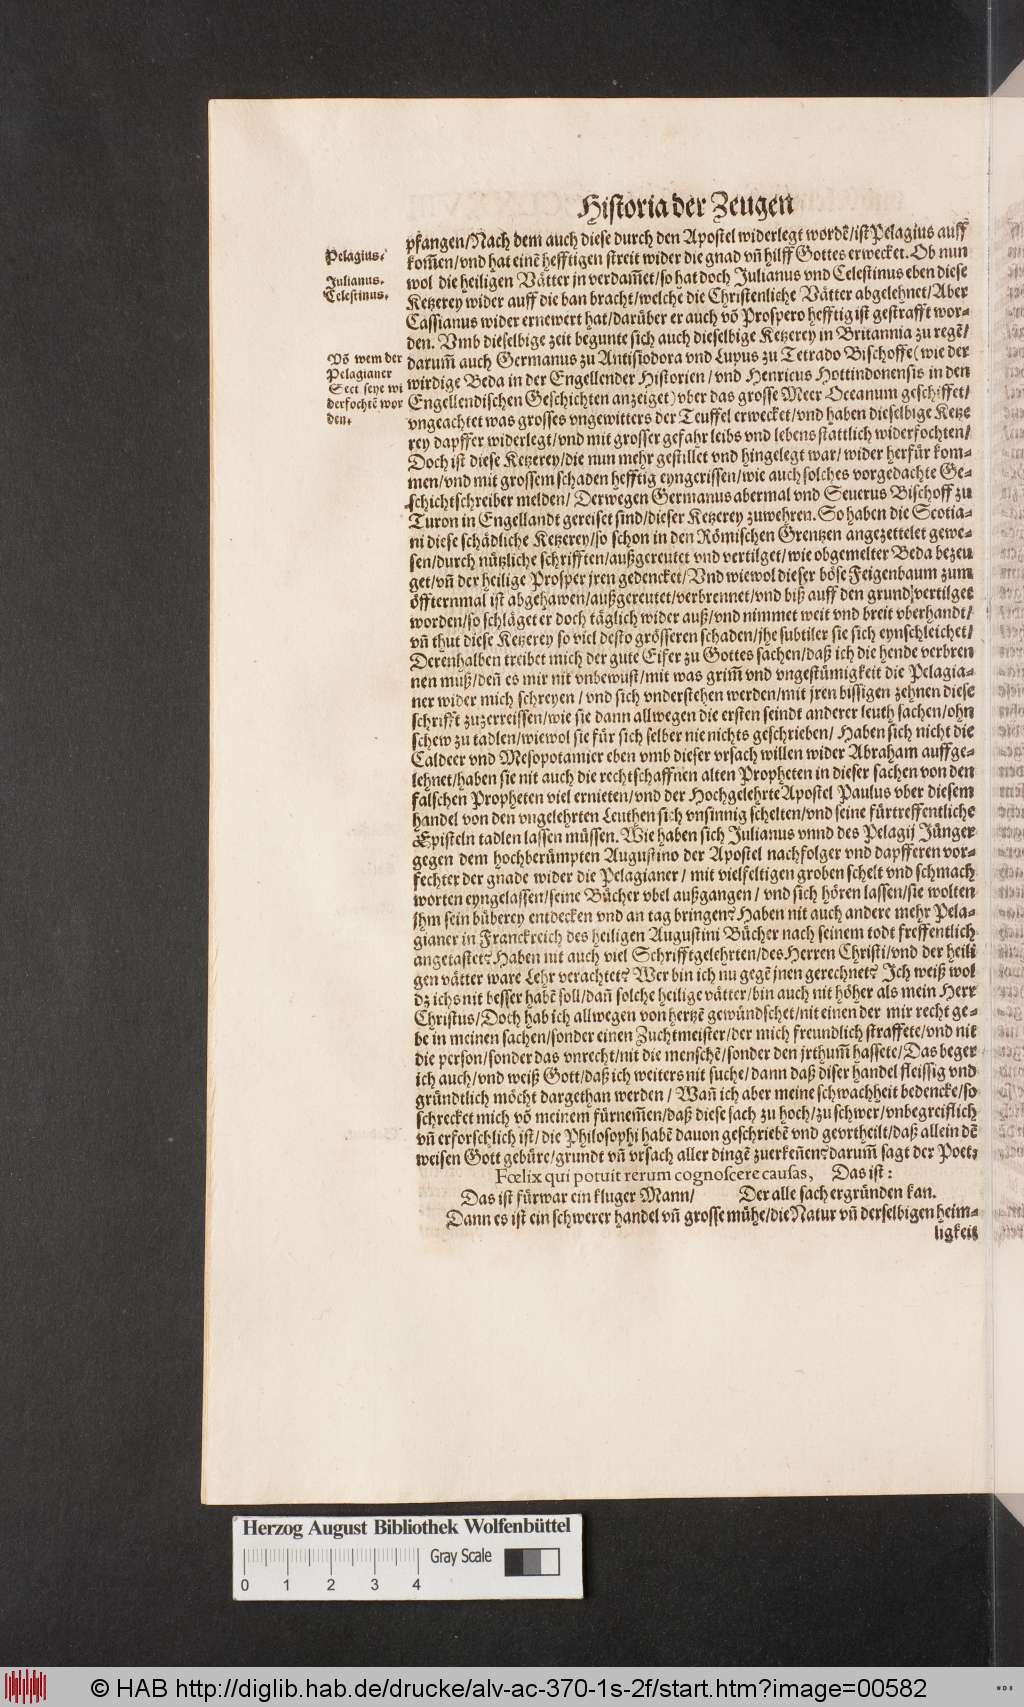 Historia der Zeugen
pfangen/Nach dem auch diese durch den Apostel widerlegt wordẽ/ist Pelagius auff
Pelagius.
kom̃en/vnd hat einẽ hefftigen streit wider die gnad vñ hilff Gottes erwecket. Ob nun
Julianus.
wol die heiligen Vätter jn verdam̃et/so hat doch Julianus vnd Celestinus eben diese
Celestinus.
Ketzerey wider auff die ban bracht/welche die Christenliche Vätter abgelehnet/Aber
Cassianus wider ernewert hat/darüber er auch võ Prospero hefftig ist gestrafft wor-
den. Vmb dieselbige zeit begunte sich auch dieselbige Ketzerey in Britannia zu regẽ/
Võ wem der
Pelagianer
Sect seye wi
derfochtẽ wor
den.
darum̃ auch Germanus zu Antisiodora vnd Lupus zu Tetrado Bischoffe (wie der
wirdige Beda in der Engellender Historien/vnd Henricus Hottindonensis in den
Engellendischen Geschichten anzeiget) vber das grosse Meer Oceanum geschiffet/
vngeachtet was grosses vngewitters der Teuffel erwecket/vnd haben dieselbige Ketze
rey dapffer widerlegt/vnd mit grosser gefahr leibs vnd lebens stattlich widerfochten/
Doch ist diese Ketzerey/die nun mehr gestillet vnd hingelegt war/wider herfür kom-
men/vnd mit grossem schaden hefftig eyngerissen/wie auch solches vorgedachte Ge-
schichtschreiber melden/ Derwegen Germanus abermal vnd Seuerus Bischoff zu
Turon in Engellandt gereiset sind/dieser Ketzerey zuwehren. So haben die Scotia-
ni diese schädliche Ketzerey/so schon in den Römischen Grentzen angezettelet gewe-
sen/durch nützliche schrifften/außgereutet vnd vertilget/wie obgemelter Beda bezeu
get/vñ der heilige Prosper jren gedencket/Vnd wiewol dieser böse Feigenbaum zum
öffternmal ist abgehawen/außgereutet/verbrennet/vnd biß auff den grund vertilget
worden/so schläget er doch täglich wider auß/vnd nimmet weit vnd breit vberhandt/
vñ thut diese Ketzerey so viel desto grösseren schaden/jhe subtiler sie sich eynschleichet/
Derenhalben treibet mich der gute Eifer zu Gottes sachen/daß ich die hende verbren
nen muß/deñ es mir nit vnbewust/mit was grim̃ vnd vngestümigkeit die Pelagia-
ner wider mich schreyen/vnd sich vnderstehen werden/mit jren bissigen zehnen diese
schrifft zuzerreissen/wie sie dann allwegen die ersten seindt anderer leuth sachen/ohn
schew zu tadlen/wiewol sie für sich selber nie nichts geschrieben/ Haben sich nicht die
Caldeer vnd Mesopotamier eben vmb dieser vrsach willen wider Abraham auffge-
lehnet/haben sie nit auch die rechtschaffnen alten Propheten in dieser sachen von den
falschen Propheten viel ernieten/vnd der Hochgelehrte Apostel Paulus vber diesem
handel von den vngelehrten Leuthen sich vnsinnig schelten/vnd seine fürtreffentliche
Episteln tadlen lassen müssen. Wie haben sich Julianus vnnd des Pelagij Jünger
gegen dem hochberümpten Augustino der Apostel nachfolger vnd dapfferen vor-
fechter der gnade wider die Pelagianer/mit vielfeltigen groben schelt vnd schmach
worten eyngelassen/seine Bücher vbel außgangen/vnd sich hören lassen/sie wolten
jhm sein büberey entdecken vnd an tag bringen? Haben nit auch andere mehr Pela-
gianer in Franckreich des heiligen Augustini Bücher nach seinem todt freffentlich
angetastet? Haben nit auch viel Schrifftgelehrten/des Herren Christi/vnd der heili
gen vätter ware Lehr verachtet? Wer bin ich nu gegẽ jnen gerechnet? Ich weiß wol
dz ichs nit besser habẽ soll/dañ solche heilige vätter/bin auch nit höher als mein Herr
Christus/Doch hab ich allwegen von hertzẽ gewündschet/nit einen der mir recht ge-
be in meinen sachen/sonder einen Zuchtmeister/der mich freundlich straffete/vnd nit
die person/sonder das vnrecht/nit die menschẽ/sonder den jrthum̃ hassete/Das beger
ich auch/vnd weiß Gott/daß ich weiters nit suche/dann daß diser handel fleissig vnd
gründtlich möcht dargethan werden/ Wañ ich aber meine schwachheit bedencke/so
schrecket mich võ meinem fürnem̃en/daß diese sach zu hoch/zu schwer/vnbegreiflich
vñ erforschlich ist/die Philosophi habẽ dauon geschriebẽ vnd gevrtheilt/daß allein dẽ
weisen Gott gebüre/grundt vñ vrsach aller dingẽ zuerkeñen? darum̃ sagt der Poet:
Fœlix qui potuit rerum cognoscere causas, Das ist:
Das ist fürwar ein kluger Mann/ Der alle sach ergründen kan.
Dann es ist ein schwerer handel vñ grosse mühe/die Natur vñ derselbigen heim-
ligkeit
Herzog August Bibliothek Wolfenbüttel
Gray Scale
0 1 2 3 4
© HAB http://diglib.hab.de/drucke/alv-ac-370-1s-2f/start.htm?image=00582